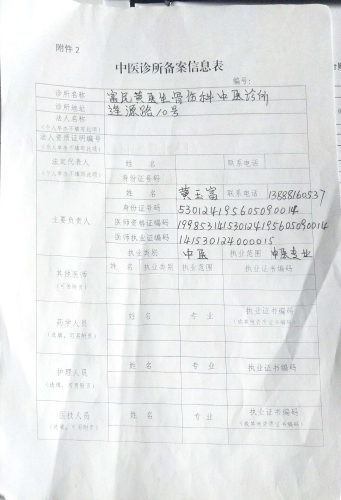 附件2
中医诊所备案信息表
编号:
诊所名称 富民黄医生骨伤科中医诊所
诊所地址 连源路10号
法人名称
(个人举办不填写此项)
法人资质证明编号
(个人举办不填写此项)
法定代表人 姓 名 联系电话
(个人举办不填写此项) 身份证号码
姓 名 黄玉富 联系电话 13888160537
身份证号码 530124195605090014
主要负责人 医师资格证编码 199853141530124195605090014
医师执业证编码 141530124000015
执业类别 中医 执业范围 中医专业
其他医师 姓 名 执业类别 执业范围 执业证书编码
(可另附页)
药学人员 姓 名 专 业 执业证书编码
护理人员 姓 名 专 业 执业证书编码
医技人员 姓 名 专 业 执业证书编码